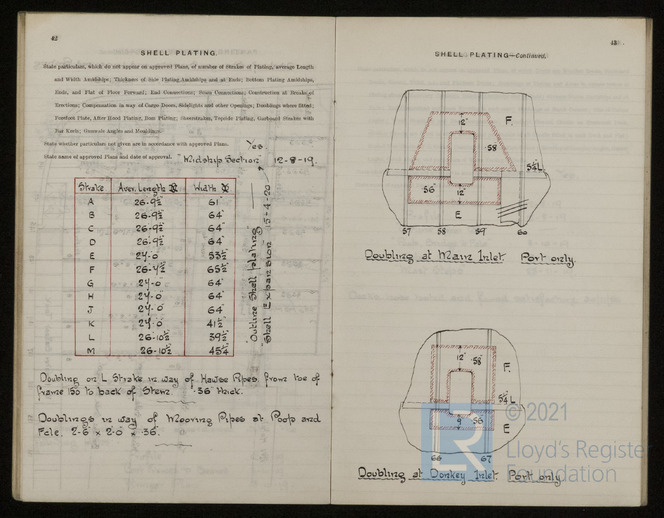 42
SHELL PLATING.
State particulars, which do not appear on approved Plans, of number of Strakes of Plating, average Length
and Width Amidships; Thickness of Side Plating Amidships and at Ends; Bottom Plating Amidships,
Ends, and Flat of Floor Forward; End Connections; Seam Connections; Construction at Breaks of
Erections; Compensation in way of Cargo Doors, Sidelights and other Openings; Doublings where fitted;
Forefoot Plate, After Hood Plating, Boss Plating; Sheerstrakes, Topside Plating, Garboard Strakes with
Bar Keels; Gunwale Angles and Mouldings.
State whether particulars not given are in accordance with approved Plans. Yes
State name of approved Plans and date of approval. "Midship Section" 12-8-19.
Outline Shell plating
Shell Expansion 15-4-20
Strake Aver. Length Width
A 26-9½ 61"
B 26-9½ 64"
C 26-9½ 64"
D 26-9½ 64"
E 24-0" 53½
F 26-4½ 65½
G 24-0" 64"
H 24-0" 64"
J 24-0" 64"
K 24-0" 41½
L 26-10½ 39½
M 26-10½ 45¼
Doubling on L Strake in way of Hawse Pipes, from toe of
frame 150 to back of Stem. .36 thick.
Doublings in way of Mooring Pipes at Poop and
Fcle. 2-6" x 2-0" x .36.
SHELL PLATING—Continued.
12"
F.
.58
54 L
.56
12"
E
57 58 59 60
Doubling at Main Inlet Port only.
12"
.58
F.
54 L
9"
.56
E
66 67
Doubling at Donkey Inlet. Port only
© 2021
LR
Lloyd's Register
Foundation